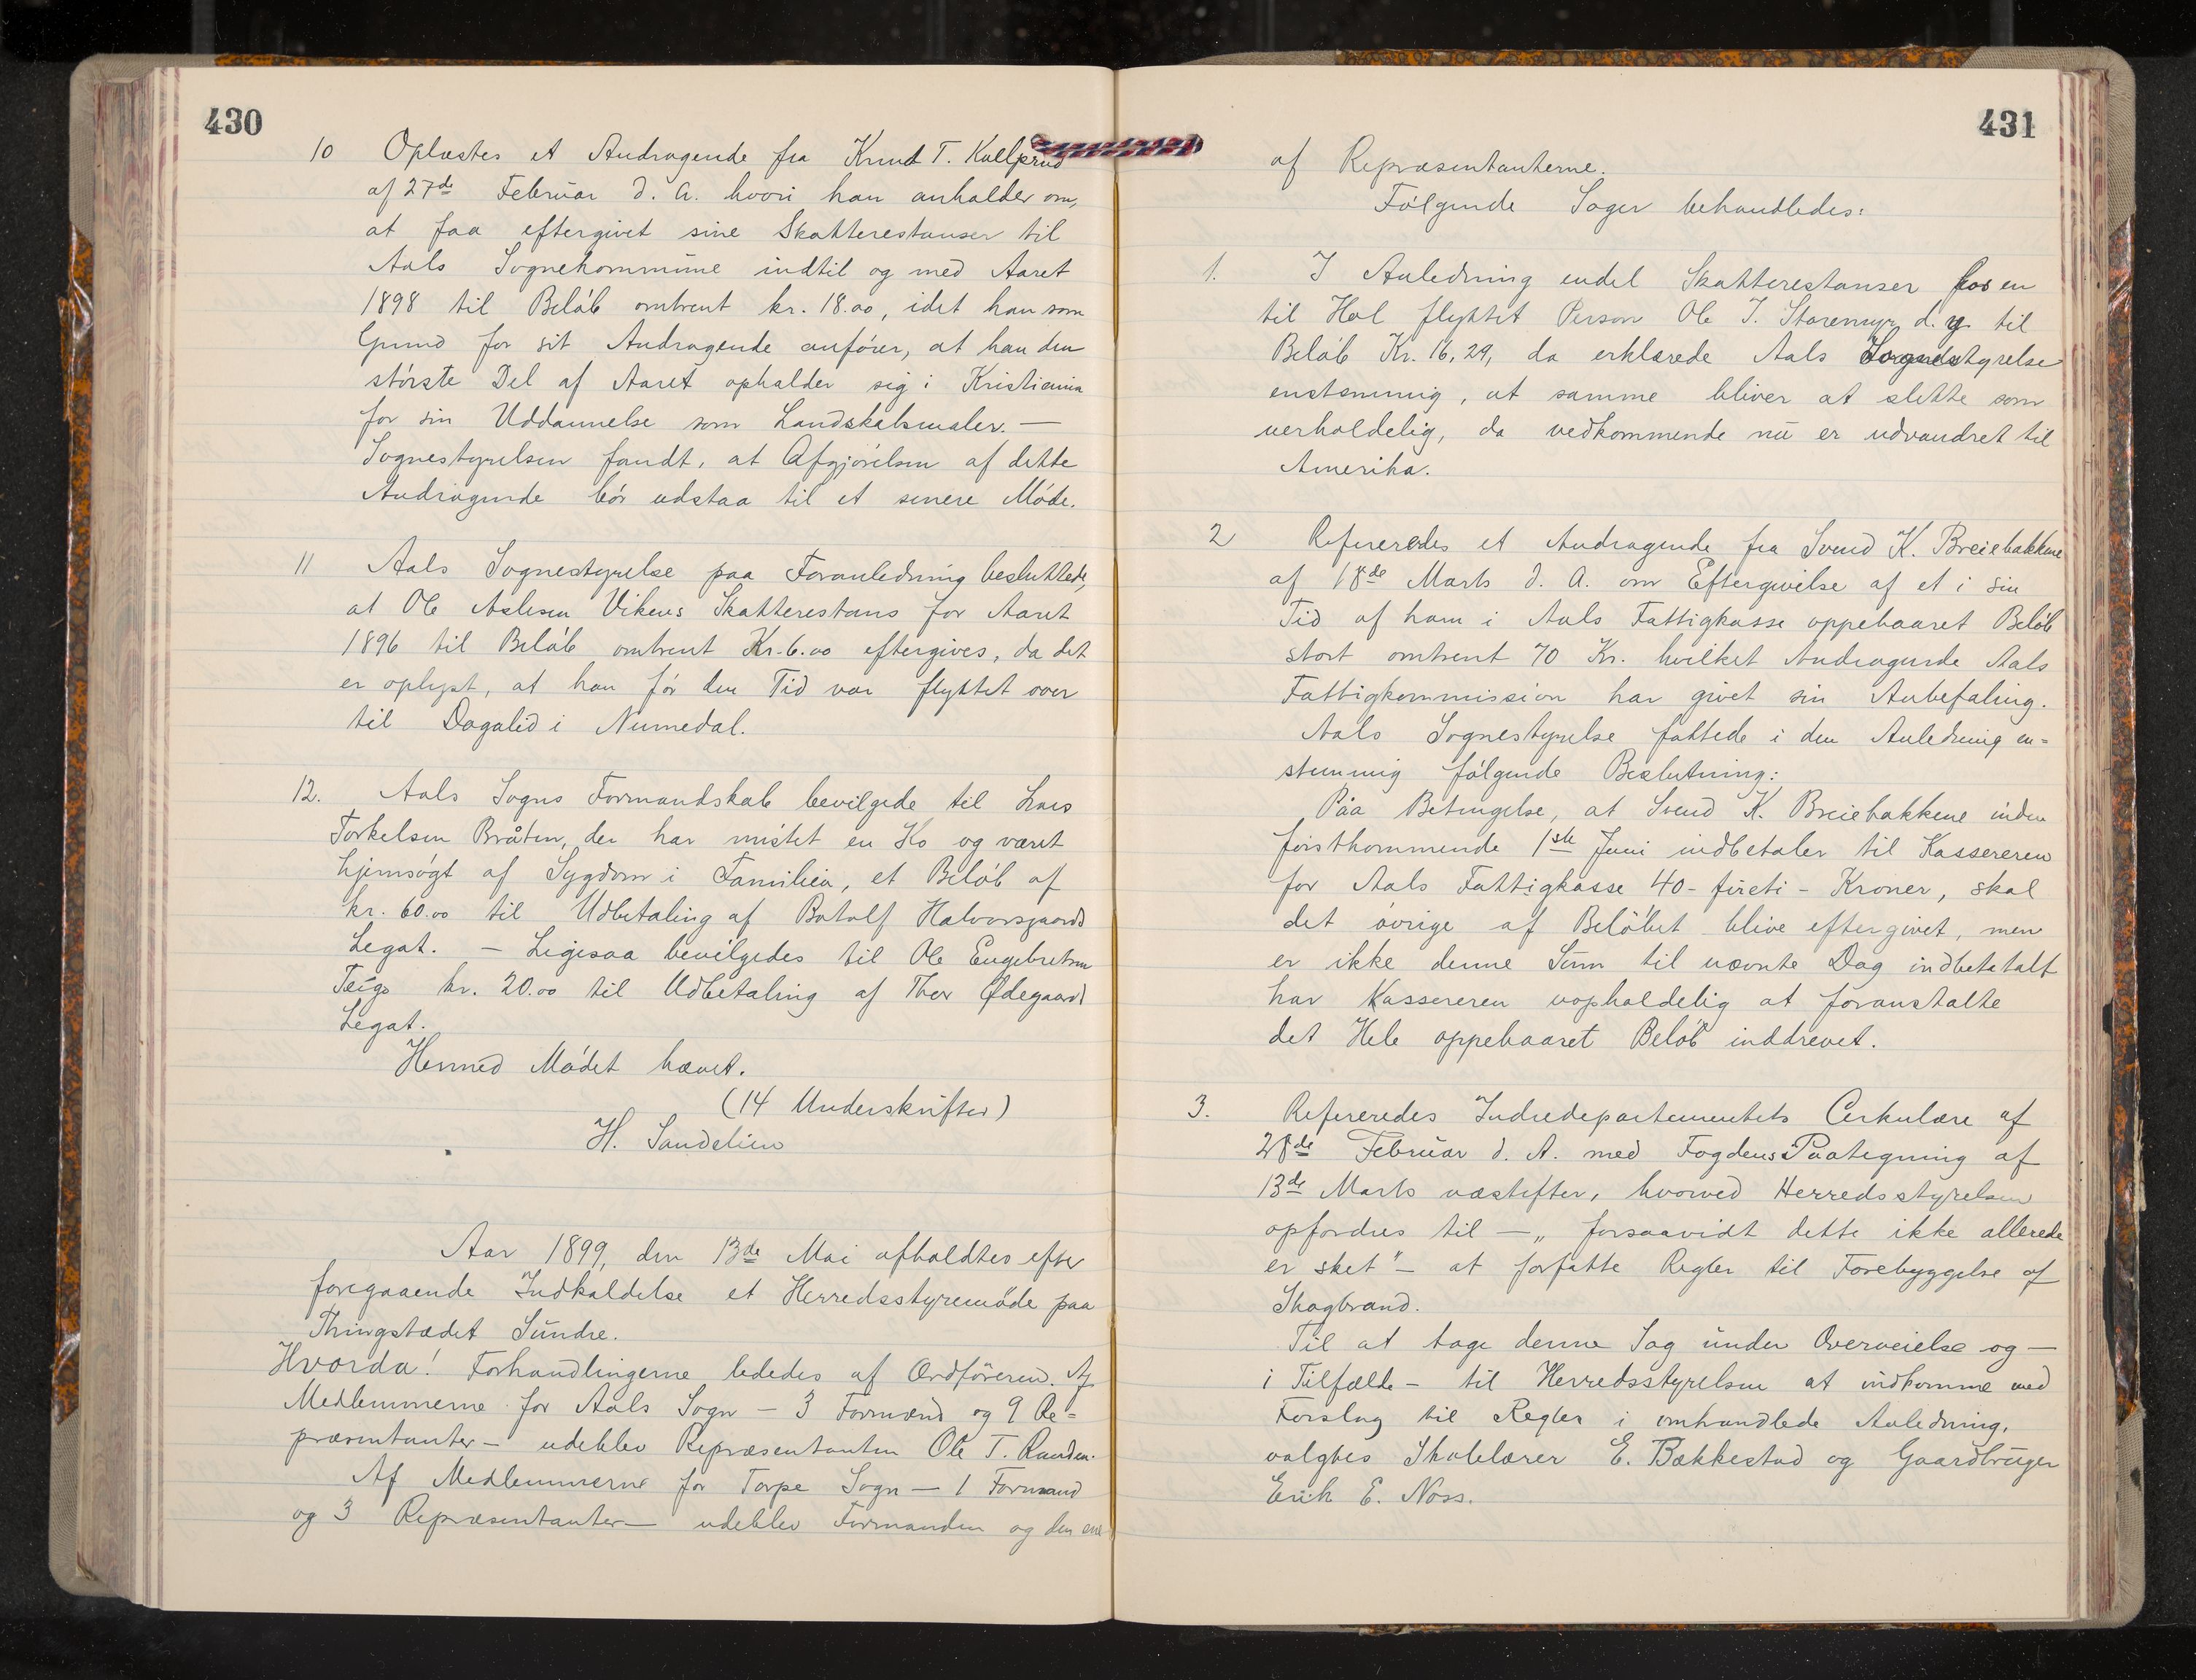 430
10 Oplæstes et Andragende fra Knud T. Kullprud
af 27de Februar d. A. hvori han anholder om,
at faa eftergivet sine Skatterestanser til
Aals Sognekommune indtil og med Aaret
1898 til Beløb omtrent kr. 18.00, idet han som
Grund for sit Andragende anfører, at han den
største Del af Aaret opholder sig i Kristiania
for sin Uddannelse som Landskabsmaler. —
Sognestyrelsen fandt, at Afgjørelsen af dette
Andragende bør udstaa til et senere Møde.
11 Aals Sognestyrelse paa Foranledning besluttede,
at Ole Aslesen Vikens Skatterestans for Aaret
1896 til Beløb omtrent Kr. 6.00 eftergives, da det
er oplyst, at han før den Tid var flyttet over
til Dagalid i Numedal.
12. Aals Sogns Formandskab bevilgede til Lars
Torkelsen Bråten, der har mistet en Ko og været
hjemsøgt af Sygdom i Familien, et Beløb af
kr. 60.00 til Udbetaling af Botolf Halvorsgaards
Legat. — Ligesaa bevilgedes til Ole Engebretsen
Teigo kr. 20.00 til Udbetaling af Thor Ødegaards
Legat.
Hermed Mødet hævet.
(14 Underskrifter)
H. Sandelien
Aar 1899, den 13de Mai afholdtes efter
foregaaende Indkaldelse et Herredsstyremøde paa
Thingstedet Sundre.
Hvorda! Forhandlingerne lededes af Ordføreren. Af
Medlemmerne for Aals Sogn — 3 Formænd og 9 Re=
præsentanter — udeblev Repræsentanten Ole T. Randen.
Af Medlemmerne for Torpe Sogn — 1 Formand
og 3 Repræsentanter — udeblev Formanden og den ene
431
af Repræsentanterne.
Følgende Sager behandledes:
1. I Anledning endel Skatterestanser hos en
til Hol flyttet Person Ole J. Storemyr d. y. til
Beløb Kr. 16,29, da erklærede Aals Sognestyrelse
enstemmig, at samme bliver at slette som
uerholdelig, da vedkommende nu er udvandret til
Amerika.
2 Refereredes et Andragende fra Svend K. Breiebakkene
af 18de Marts d. A. om Eftergivelse af et i sin
Tid af ham i Aals Fattigkasse oppebaaret Beløb
stort omtrent 70 Kr. hvilket Andragende Aals
Fattigkommission har givet sin Anbefaling.
Aals Sognestyrelse fattede i den Anledning en=
stemmig følgende Beslutning:
Paa Betingelse, at Svend K. Breiebakkene inden
førstkommende 1ste Juni indbetaler til Kassereren
for Aals Fattigkasse 40 - fireti - Kroner, skal
det øvrige af Beløbet blive eftergivet, men
er ikke denne Sum til nævnte Dag indbetatalt
har Kassereren uopholdelig at foranstalte
det Hele oppebaaret Beløb inddrevet.
3. Refereredes Indredepartementets Cirkulære af
28de Februar d. A. med Fogdens Paategning af
13de Marts næstefter, hvorved Herredsstyrelsen
opfordres til — „ forsaavidt dette ikke allerede
er sket" — at forfatte Regler til Forebyggelse af
Skogbrand.
Til at tage denne Sag under Overveielse og —
i Tilfælde — til Herredsstyrelsen at indkomme med
Forslag til Regler i omhandlede Anledning,
valgtes Skolelærer E. Bækkestad og Gaardbruger
Erik E. Noss.